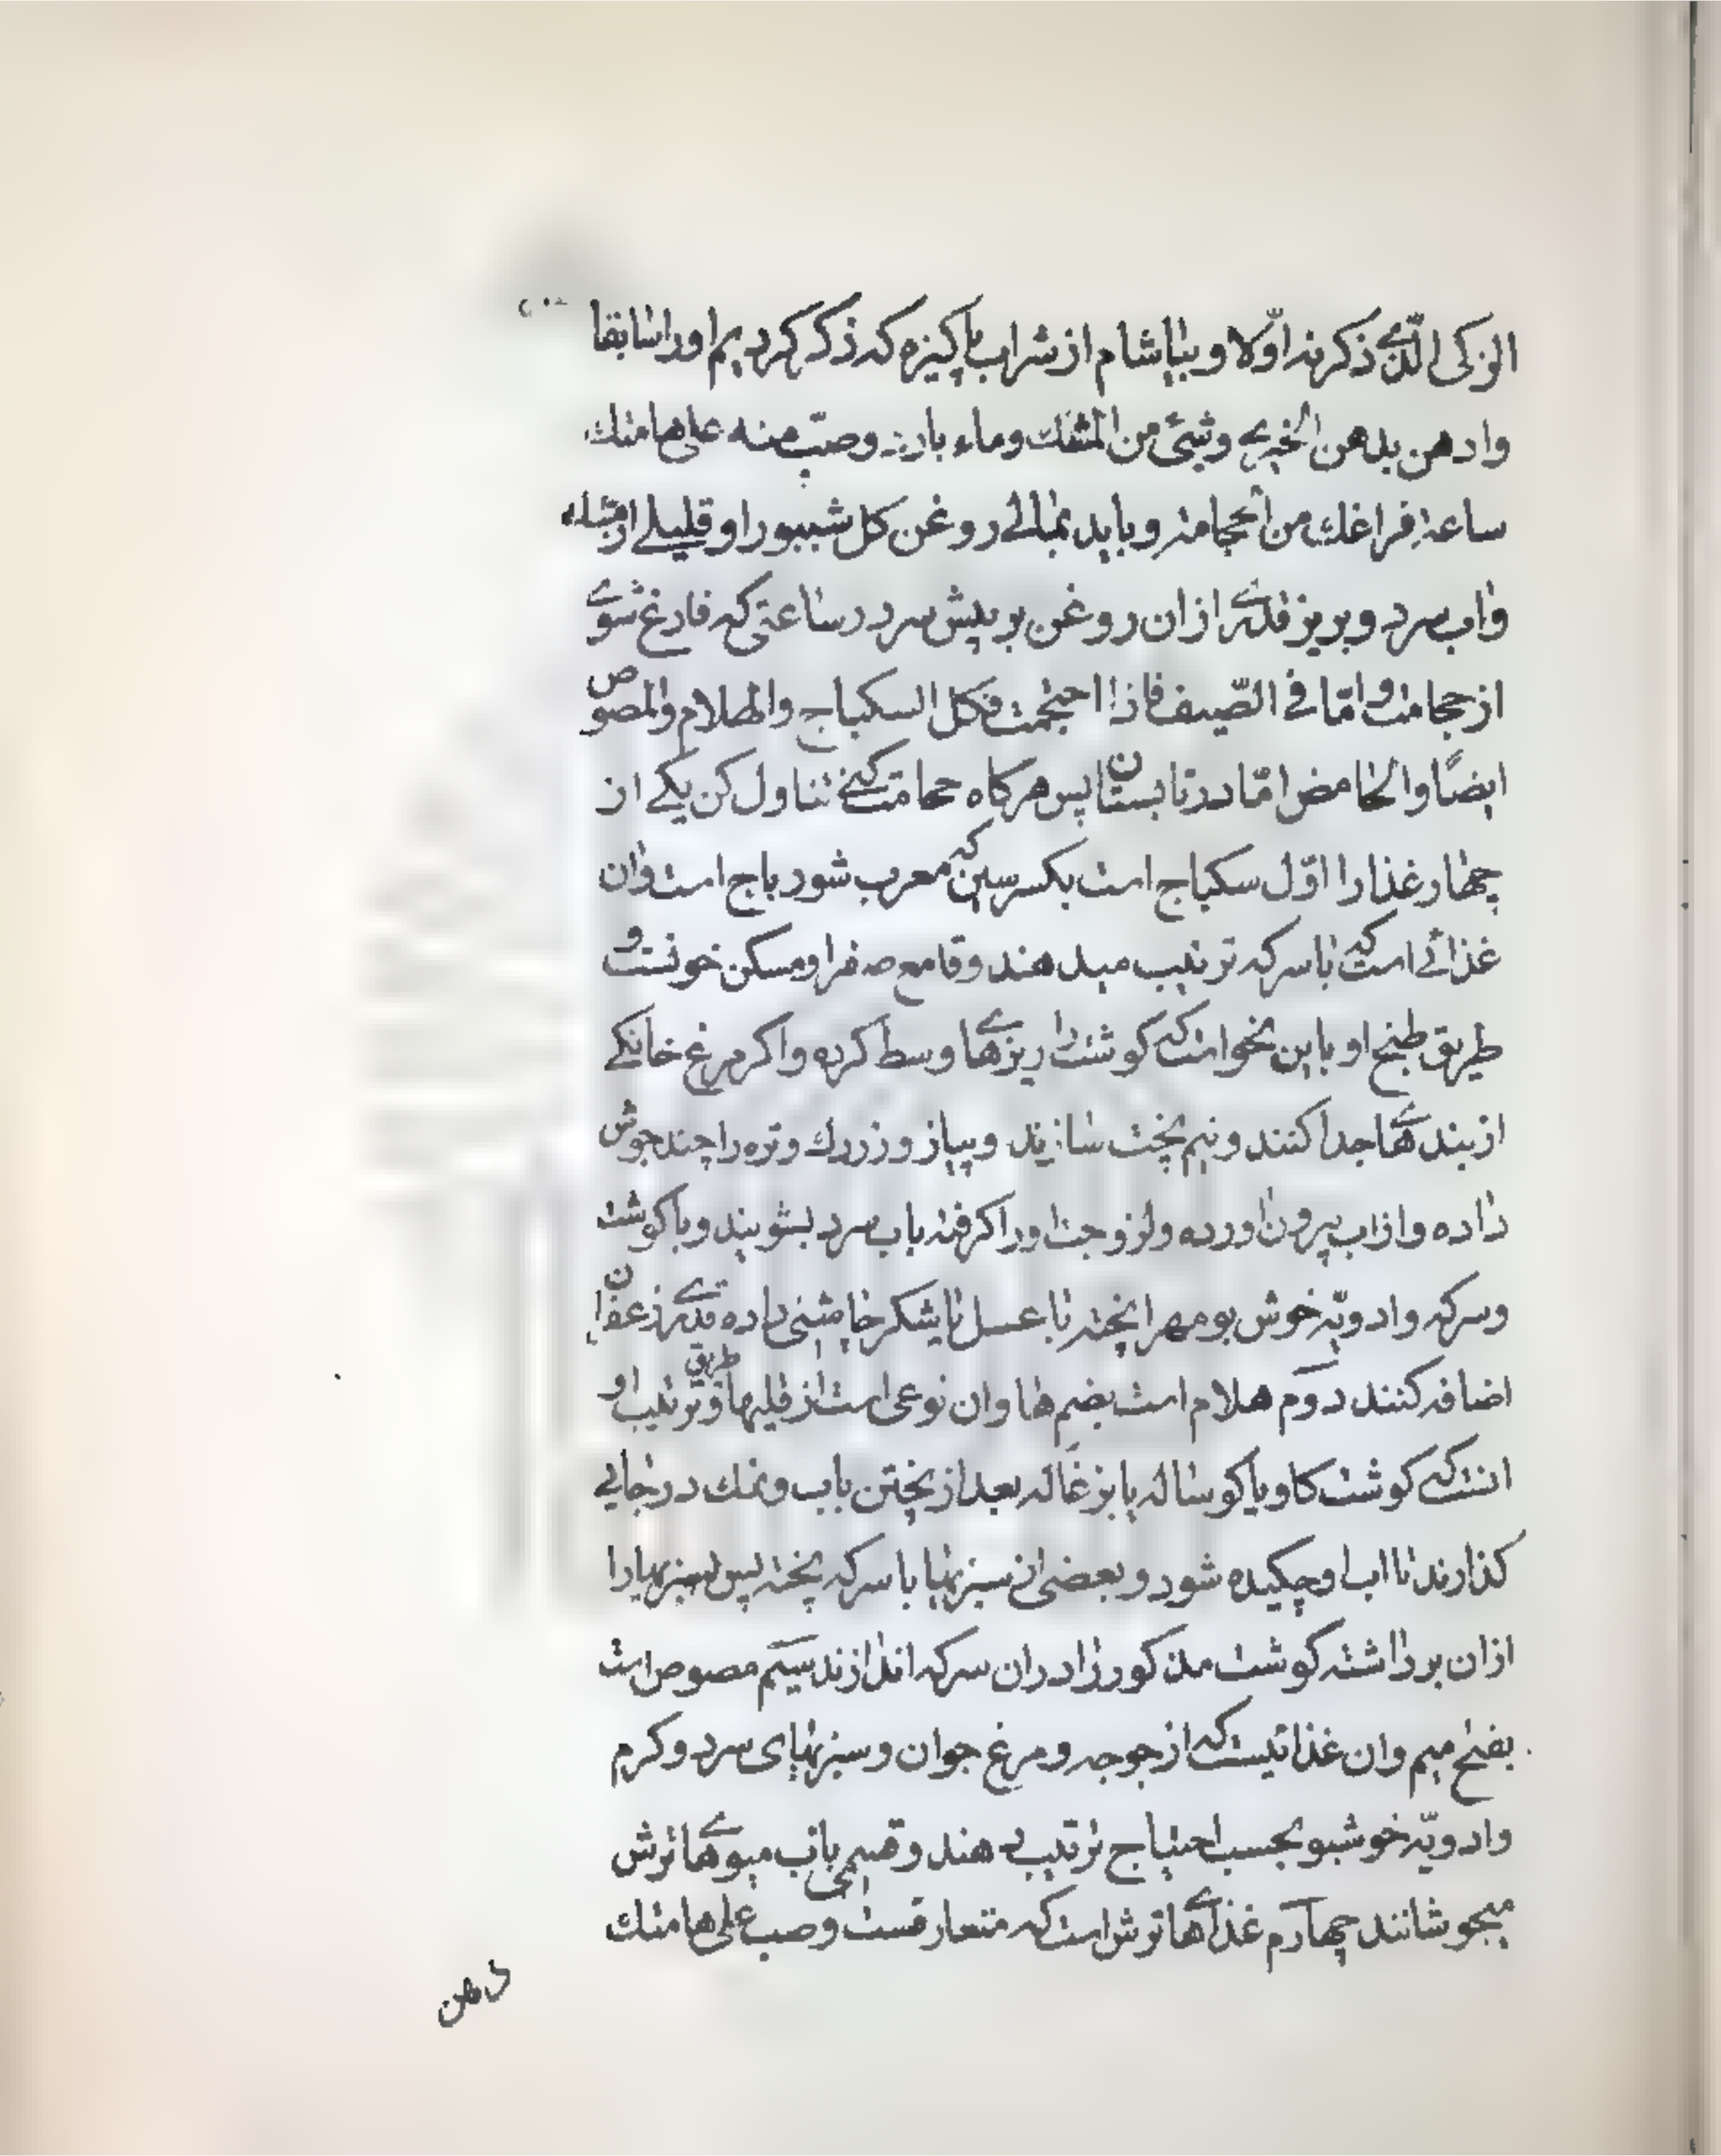 الزکی الّذی ذکرته اوّلا و بیاشام از شراب پاکیزه که ذکر کردیم اورا سابقا
وادهن بدهن الخیری وشیئ من المسك وماء بارد وصبّ منه علی هامتك
ساعة فراغك من الحجامة وباید بمالی روغن کل شببورا وقلیلی از مشك
واب سرد وبریز قدری ازان روغن بر پیش سر در ساعتی که فارغ شوی
از حجامت وامّا فی الصّیف فاذا احتجمت فکل السکباج والهلام والمصوص
ایضًا والحامض امّا در تابستان پس هرکاه حجامت کنی تناول کن یکی از
چهار غذا را اوّل سکباج است بکسر سین که معرب شور باج است وان
غذائی است که با سرکه ترتیب میدهند وقامع صفرا ومسکن خونست و
طریق طبخ او باین نحو است که کوشت را ریزهای وسط کرده واکر مرغ خانکی
از بندهای جدا کنند ونیم پخت سازند وپیاز وزردك وتره را چند جوش
داده واز اب بیرون اورده ولزوجت اورا کرفته باب سرد بشویند وبا کوشت
وسرکه وادویّه خوش بو مهرا پخته با عسل یا شکر چاشنی داده قدری زعفران
اضافه کنند دوم هلام است بضم ها وان نوعی است از قلیها وطریق ترتیب او
انست که کوشت کاو یا کوساله یا بزغاله بعد از پختن باب ونمك در جایی
کذارند تا اب او چکیده شود و بعضی از سبزیها با سرکه پخته پس سبزیها را
ازان برداشته کوشت مذکور را دران سرکه اندازند سیم مصوص است
بفتح میم وان غذائیست که از جوجه ومرغ جوان وسبزیهای سرد وکرم
وادویّه خوشبو بحسب احتیاج ترتیب دهند وقسمی باب میوهای ترش
میجوشانند چهارم غذاهای ترش است که متعارفست وصب علی هامتك
دهن